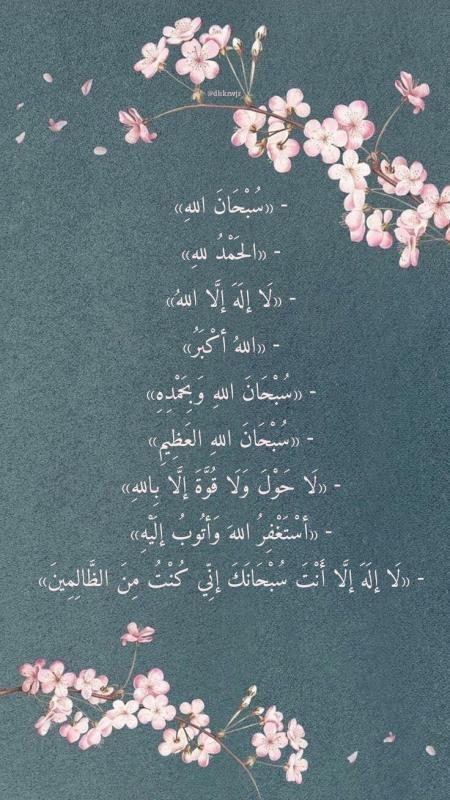 @dhknwjr
- ((سُبْحَانَ اللهِ))
- ((الحَمْدُ للهِ))
- ((لَا إِلَهَ إِلَّا اللهُ))
- ((اللهُ أَكْبَرُ))
- ((سُبْحَانَ اللهِ وَبِحَمْدِهِ))
- ((سُبْحَانَ اللهِ العَظِيمِ))
- ((لَا حَوْلَ وَلَا قُوَّةَ إِلَّا بِاللهِ))
- ((أَسْتَغْفِرُ اللهَ وَأَتُوبُ إِلَيْهِ))
- ((لَا إِلَهَ إِلَّا أَنْتَ سُبْحَانَكَ إِنِّي كُنْتُ مِنَ الظَّالِمِينَ))